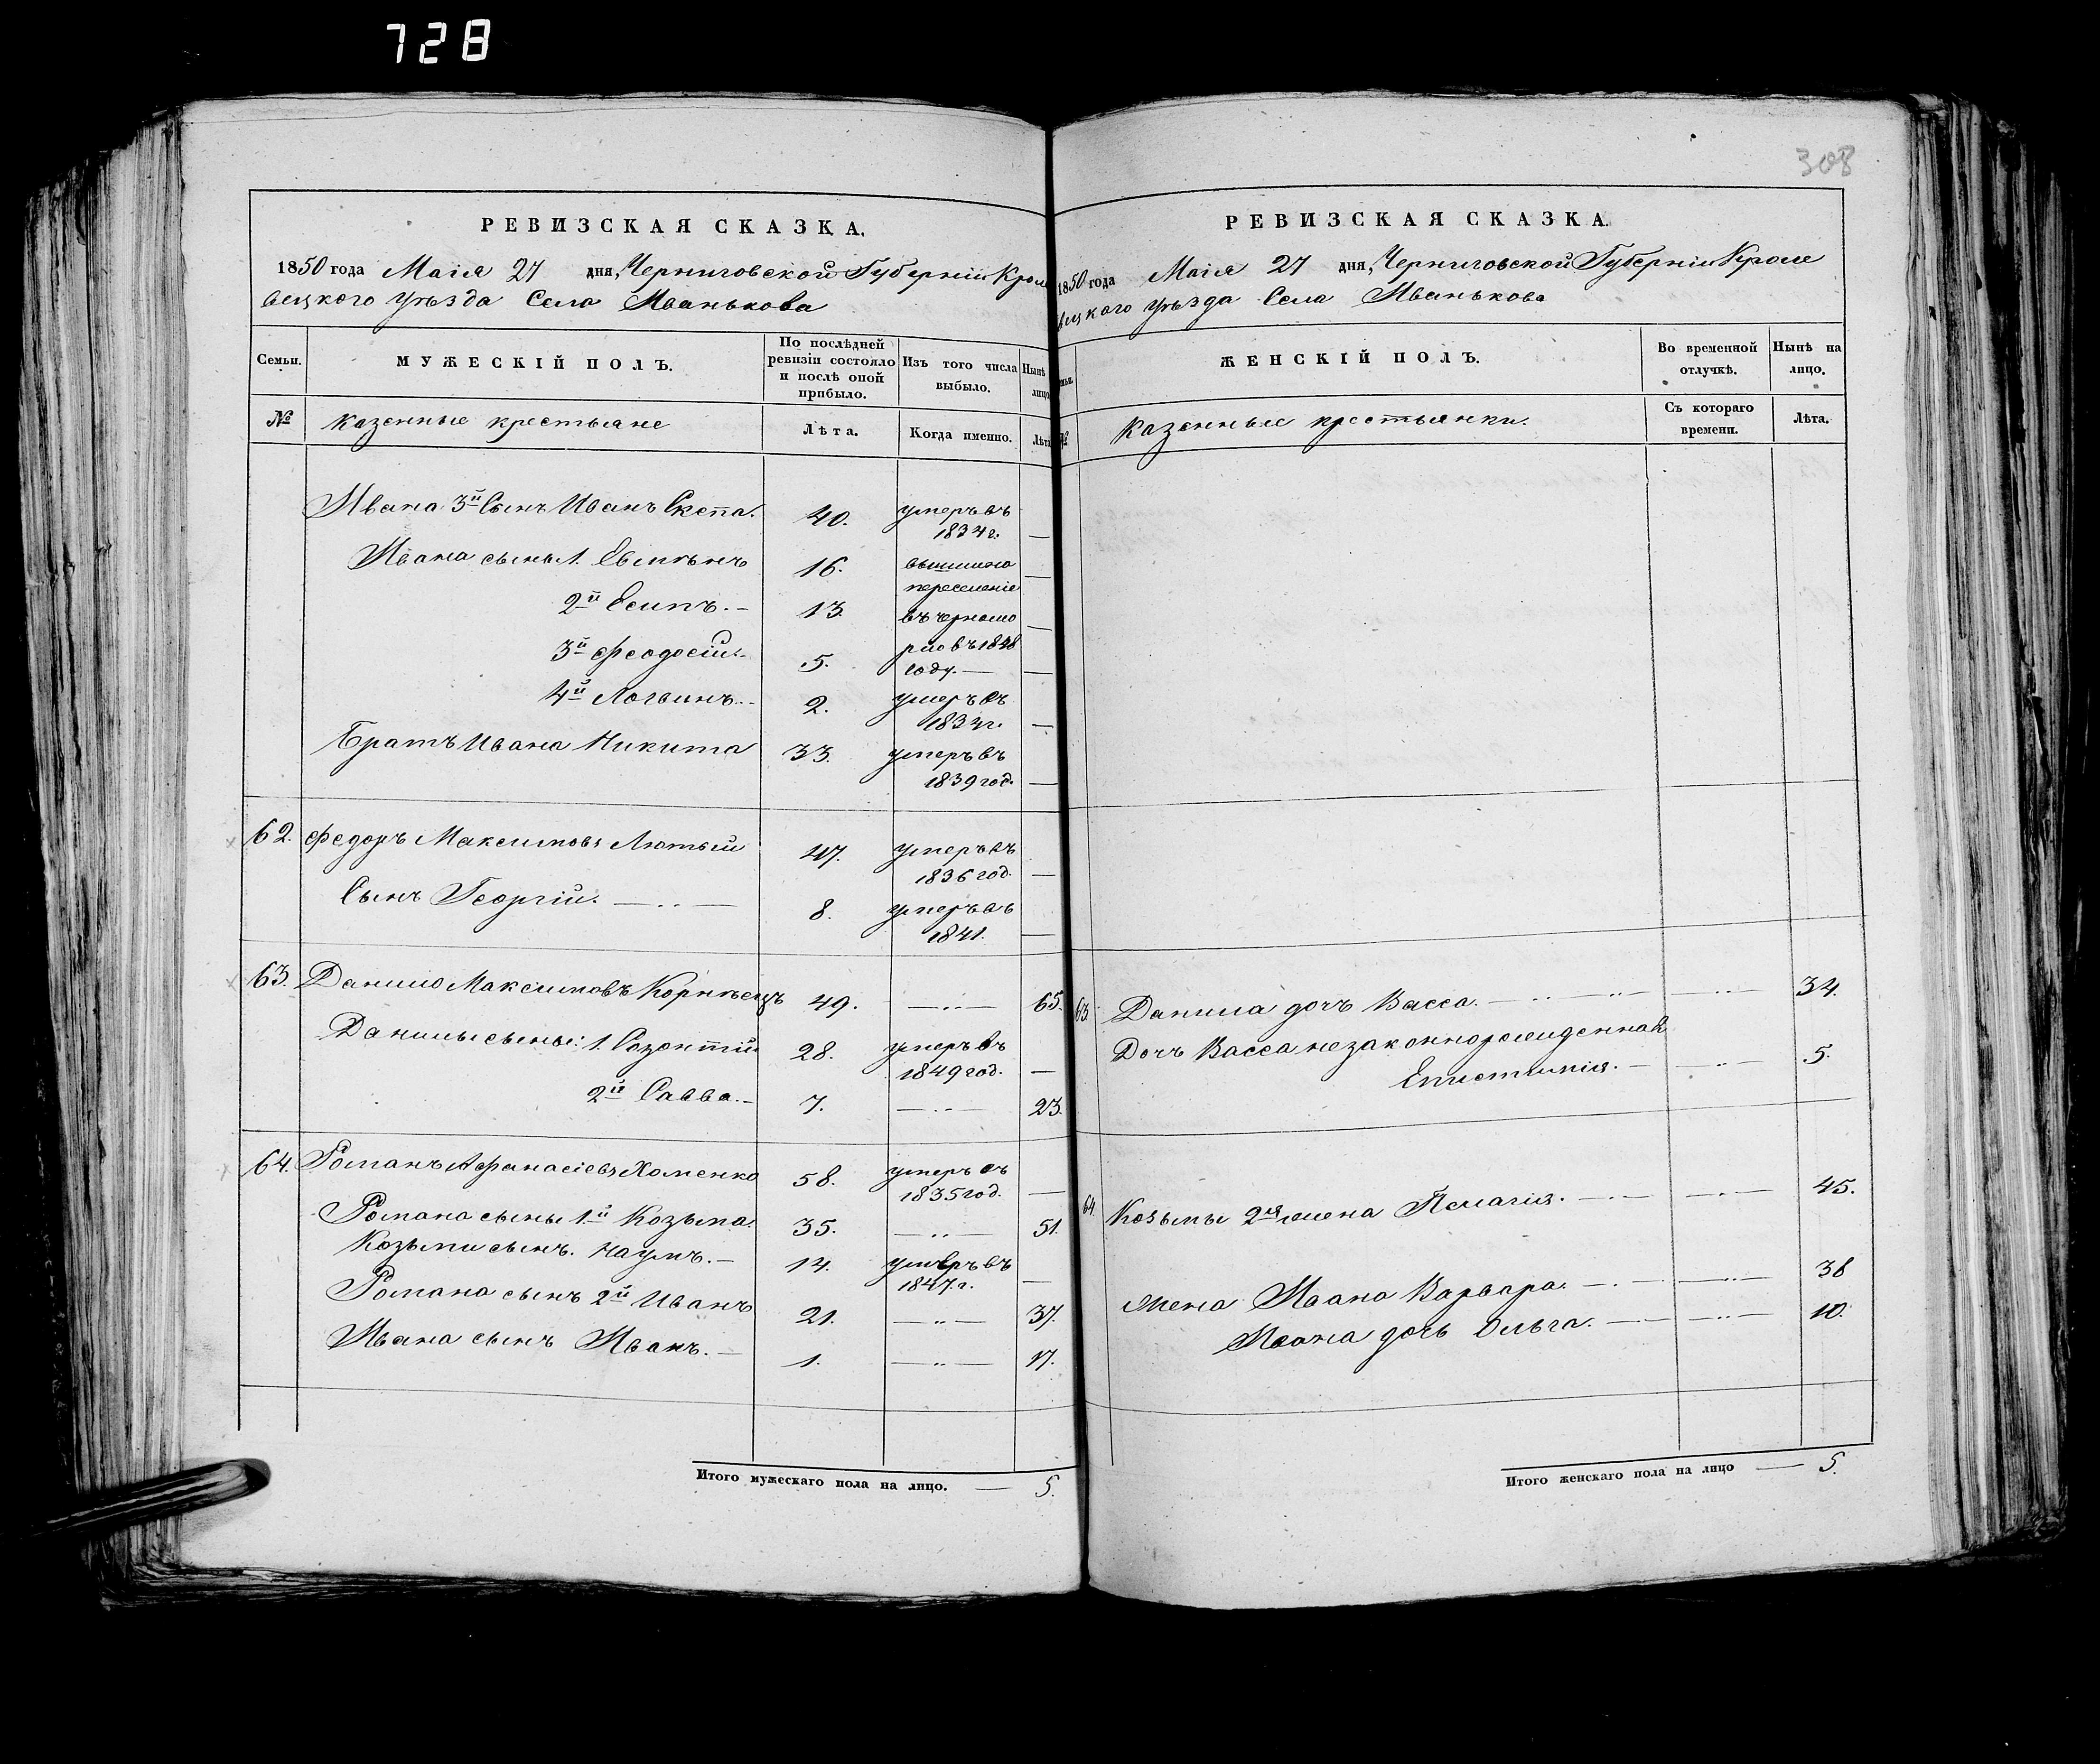 728
308
РЕВИЗСКАЯ СКАЗКА.
1850 года Маія 27 дня, Черниговской Губерніи Кроле
вецкого уѣзда Села Иванькова
Семьи. МУЖЕСКІЙ ПОЛЪ. По послѣдней ревизіи состояло и послѣ оной прибыло. Изъ того числа выбыло. Нынѣ лицо
№ казенные крестьяне Лѣта. Когда именно. Лѣта
Ивана 3й Сынъ Иванъ 40. умеръ въ
1834 г. —
Ивана сыны 1. 16. —
переселеніе
2й Есипъ. — 13. въ черномо —
3й Феодосій. 5. рію въ 1848
году. — —
4й Логвинъ. 2. умеръ въ
1834 г. —
Братъ Ивана Никита 33. умеръ въ
1839 год. —
62. Федоръ Максимовъ Лютый 47. умеръ въ
1836 год. —
Сынъ Георгій. 8. умеръ въ
1841. —
63. Данило Максимовъ Корнѣецъ 49. — 65.
Данилы сыны: 1. Созонтій 28. умеръ въ
1849 год. —
2й Савва. — 7. — 23.
64. Романъ Афанасіевъ Хоменко 58. умеръ въ
1835 год. —
Романа сыны 1й Козьма. 35. — 51.
Козьмы сынъ. Наумъ. — 14. умеръ въ
1847 г. —
Романа сынъ 2й Иванъ 21. — 37.
Ивана сынъ Иванъ. — 1. — 17.
Итого мужескаго пола на лицо. — 5.
РЕВИЗСКАЯ СКАЗКА.
1850 года Маія 27 дня, Черниговской Губерніи Кроле
вецкаго уѣзда Села Иванькова
ЖЕНСКІЙ ПОЛЪ. Во временной отлучкѣ. Нынѣ на лицо.
№ казенные крестьянки. Съ котораго времени. Лѣта.
63. Данила дочь Васса. — 34.
Дочь Васса незаконнорожденная
Епистимія. — 5.
64. Козьмы 2я жена Пелагія. — 45.
Жена Ивана Варвара. — 38
Ивана дочь Ольга. — 10.
Итого женскаго пола на лицо — 5.